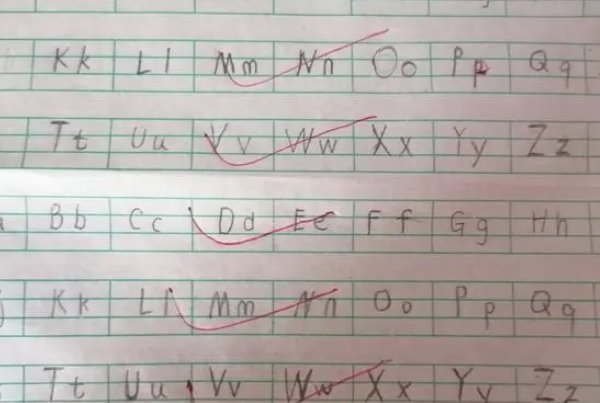 Kk Ll Mm Nn Oo Pp Qq
Tt Uu Vv Ww Xx Yy Zz
Bb Cc Dd Ee Ff Gg Hh
Kk Ll Mm Nn Oo Pp Qq
Tt Uu Vv Ww Xx Yy Zz